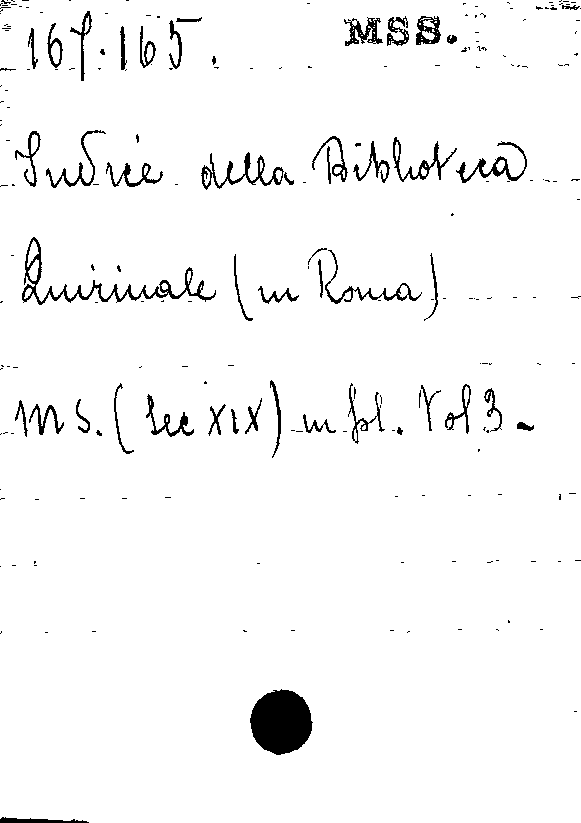 167.165. MSS.
Indice della Biblioteca
Quirinale (in Roma)
MS. (Sec XIX) in fol. Vol 3-